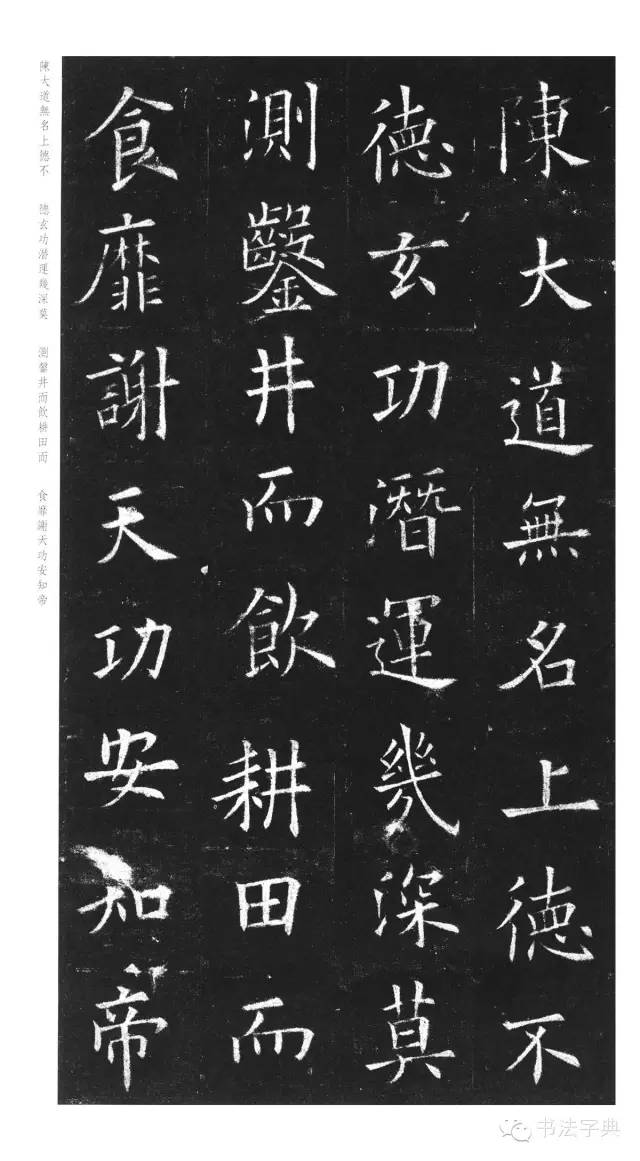 陳大道無名上德不
德玄功潛運幾深莫
測鑿井而飲耕田而
食靡謝天功安知帝
陳大道無名上德不 德玄功潛運幾深莫 測鑿井而飲耕田而 食靡謝天功安知帝
书法字典